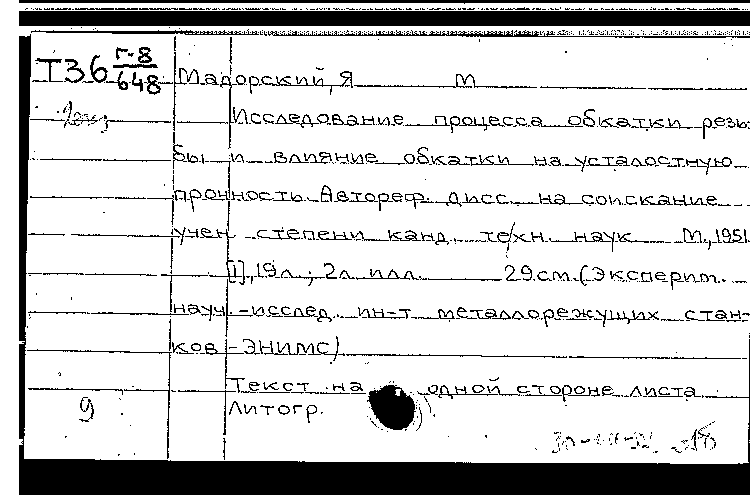 Т36 г-8/648
Мадорский, Я М
Исследование процесса обкатки резь-
бы и влияние обкатки на усталостную
прочность. Автореф. дисс. на соискание
учен. степени канд. техн. наук М., 1951
[1], 19л.; 2л. илл. 29см. (Эксперим.
науч.-исслед. ин-т металлорежущих стан-
ков - ЭНИМС)
Текст на одной стороне листа
Литогр.
9